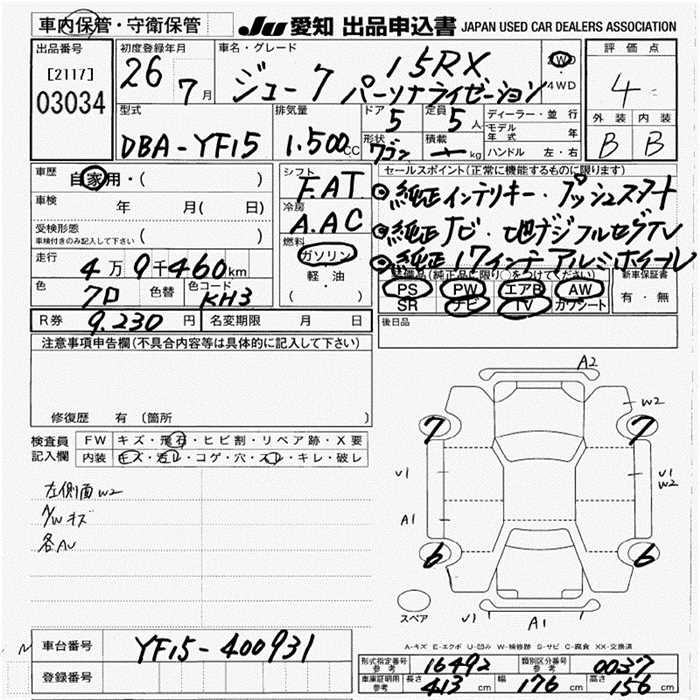 車内保管・守衛保管
JU 愛知 出品申込書 JAPAN USED CAR DEALERS ASSOCIATION
出品番号
[2117]
03034
初度登録年月
26 7 月
車名・グレード
ジューク 15RX パーソナライゼーション
2WD
4WD
評価点
4
外装 内装
B B
型式
DBA-YF15
排気量
1.500 CC
ドア 5
定員 5 人
形状 ワゴン
積載 kg
ディーラー・並行
モデル年式 年
ハンドル 左・右
車歴 自家用・( )
車検 年 月( 日)
受検形態
車検付きのみ記入して下さい ( )
走行 4万9千460km
色 クロ 色替 色コード KH3
シフト F.AT
冷房 A.AC
燃料
ガソリン
軽・油
( )
セールスポイント(正常に機能するものに限ります)
◎純正インテリキー・プッシュスタート
◎純正ナビ・地デジフルセグTV
◎純正17インチアルミホイール
装備品(純正品に限り○をつけてください)
PS PW エアB AW
SR ナビ TV カワシート
新車保証書
有・無
後日品
R券 9.230 円 名変期限 月 日
注意事項申告欄(不具合内容等は具体的に記入して下さい)
修復歴 有 〔箇所 〕
検査員記入欄
FW キズ・飛石・ヒビ割・リペア跡・X要
内装 キズ・汚レ・コゲ・穴・スレ・キレ・破レ
左側面W2
A/Wキズ
各AU
A2
W2
7 7
V1 V1
W2
A1
6 6
スペア
V1 A1
A-キズ E-エクボ U-凹み W-補修跡 S-サビ C-腐食 XX-交換済
車台番号 YF15-400931
登録番号
型式指定番号参考 16492 類別区分番号参考 0037
車庫証明用参考 長さ 413 cm 幅 176 cm 高さ 156 cm